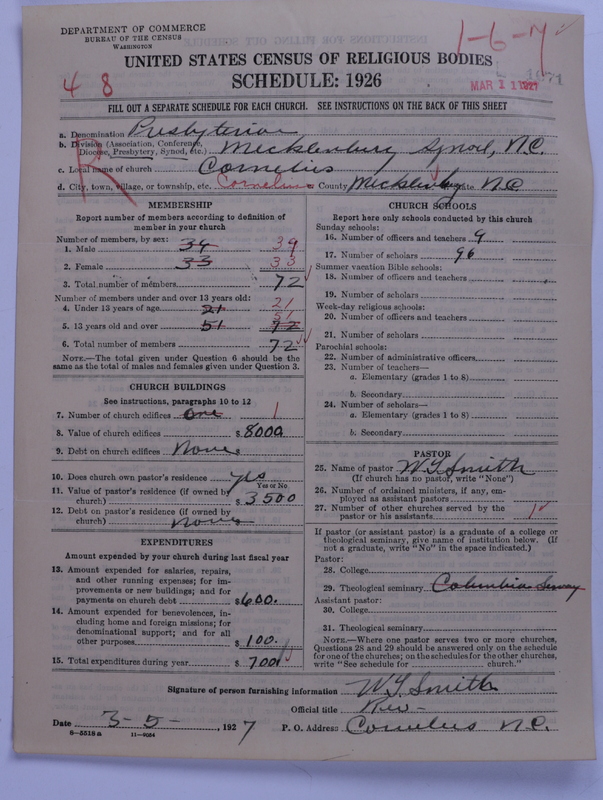 DEPARTMENT OF COMMERCE
BUREAU OF THE CENSUS
WASHINGTON
1-6-
4 8
MAR 11 1927
UNITED STATES CENSUS OF RELIGIOUS BODIES
SCHEDULE: 1926
FILL OUT A SEPARATE SCHEDULE FOR EACH CHURCH. SEE INSTRUCTIONS ON THE BACK OF THIS SHEET
R
a. Denomination Presbyterian
b. Division (Association, Conference, Diocese, Presbytery, Synod, etc.) Mecklenburg Synod, N.C.
c. Local name of church Cornelius
d. City, town, village, or township, etc. Cornelius County Mecklenburg State N.C.
MEMBERSHIP
Report number of members according to definition of
member in your church
Number of members, by sex:
1. Male 34 39
2. Female 33 33
3. Total number of members 72
Number of members under and over 13 years old:
4. Under 13 years of age 21 21
5. 13 years old and over 51 72 51
6. Total number of members 72
NOTE.—The total given under Question 6 should be the
same as the total of males and females given under Question 3.
CHURCH BUILDINGS
See instructions, paragraphs 10 to 12
7. Number of church edifices One 1
8. Value of church edifices $8000
9. Debt on church edifices None
10. Does church own pastor's residence yes
Yes or No
11. Value of pastor's residence (if owned by
church) $3500
12. Debt on pastor's residence (if owned by
church) none
EXPENDITURES
Amount expended by your church during last fiscal year
13. Amount expended for salaries, repairs,
and other running expenses; for im-
provements or new buildings; and for
payments on church debt $600.
14. Amount expended for benevolences, in-
cluding home and foreign missions; for
denominational support; and for all
other purposes $100.
15. Total expenditures during year $700
CHURCH SCHOOLS
Report here only schools conducted by this church
Sunday schools:
16. Number of officers and teachers 9
17. Number of scholars 96
Summer vacation Bible schools:
18. Number of officers and teachers
19. Number of scholars
Week-day religious schools:
20. Number of officers and teachers
21. Number of scholars
Parochial schools:
22. Number of administrative officers
23. Number of teachers—
a. Elementary (grades 1 to 8)
b. Secondary
24. Number of scholars—
a. Elementary (grades 1 to 8)
b. Secondary
PASTOR
25. Name of pastor W T Smith
(If church has no pastor, write "None")
26. Number of ordained ministers, if any, em-
ployed as assistant pastors
27. Number of other churches served by the
pastor or his assistants 1
If pastor (or assistant pastor) is a graduate of a college or
theological seminary, give name of institution below. (If
not a graduate, write "No" in the space indicated.)
Pastor:
28. College
29. Theological seminary Columbia
Assistant pastor:
30. College
31. Theological seminary
NOTE.—Where one pastor serves two or more churches,
Questions 28 and 29 should be answered only on the schedule
for one of the churches; on the schedules for the other churches,
write "See schedule for church."
Signature of person furnishing information W T Smith
Official title Rev
Date 3-5-, 1927 P. O. Address Cornelius N.C.
6-5518a 11-9054